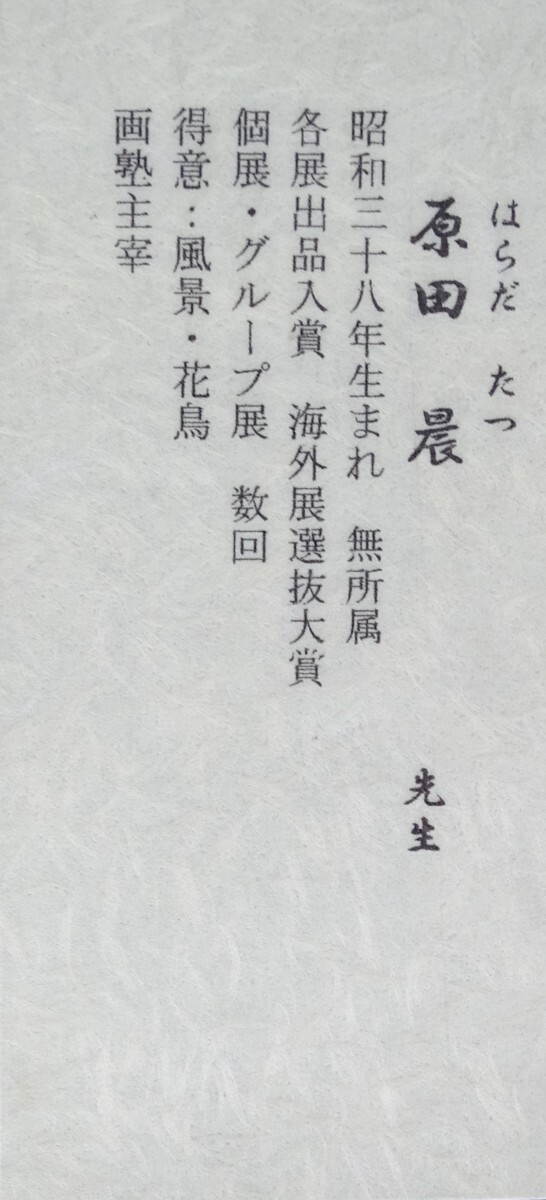 はらだ たつ
原田 晨 先生
昭和三十八年生まれ 無所属
各展出品入賞 海外展選抜大賞
個展・グループ展 数回
得意：風景・花鳥
画塾主宰